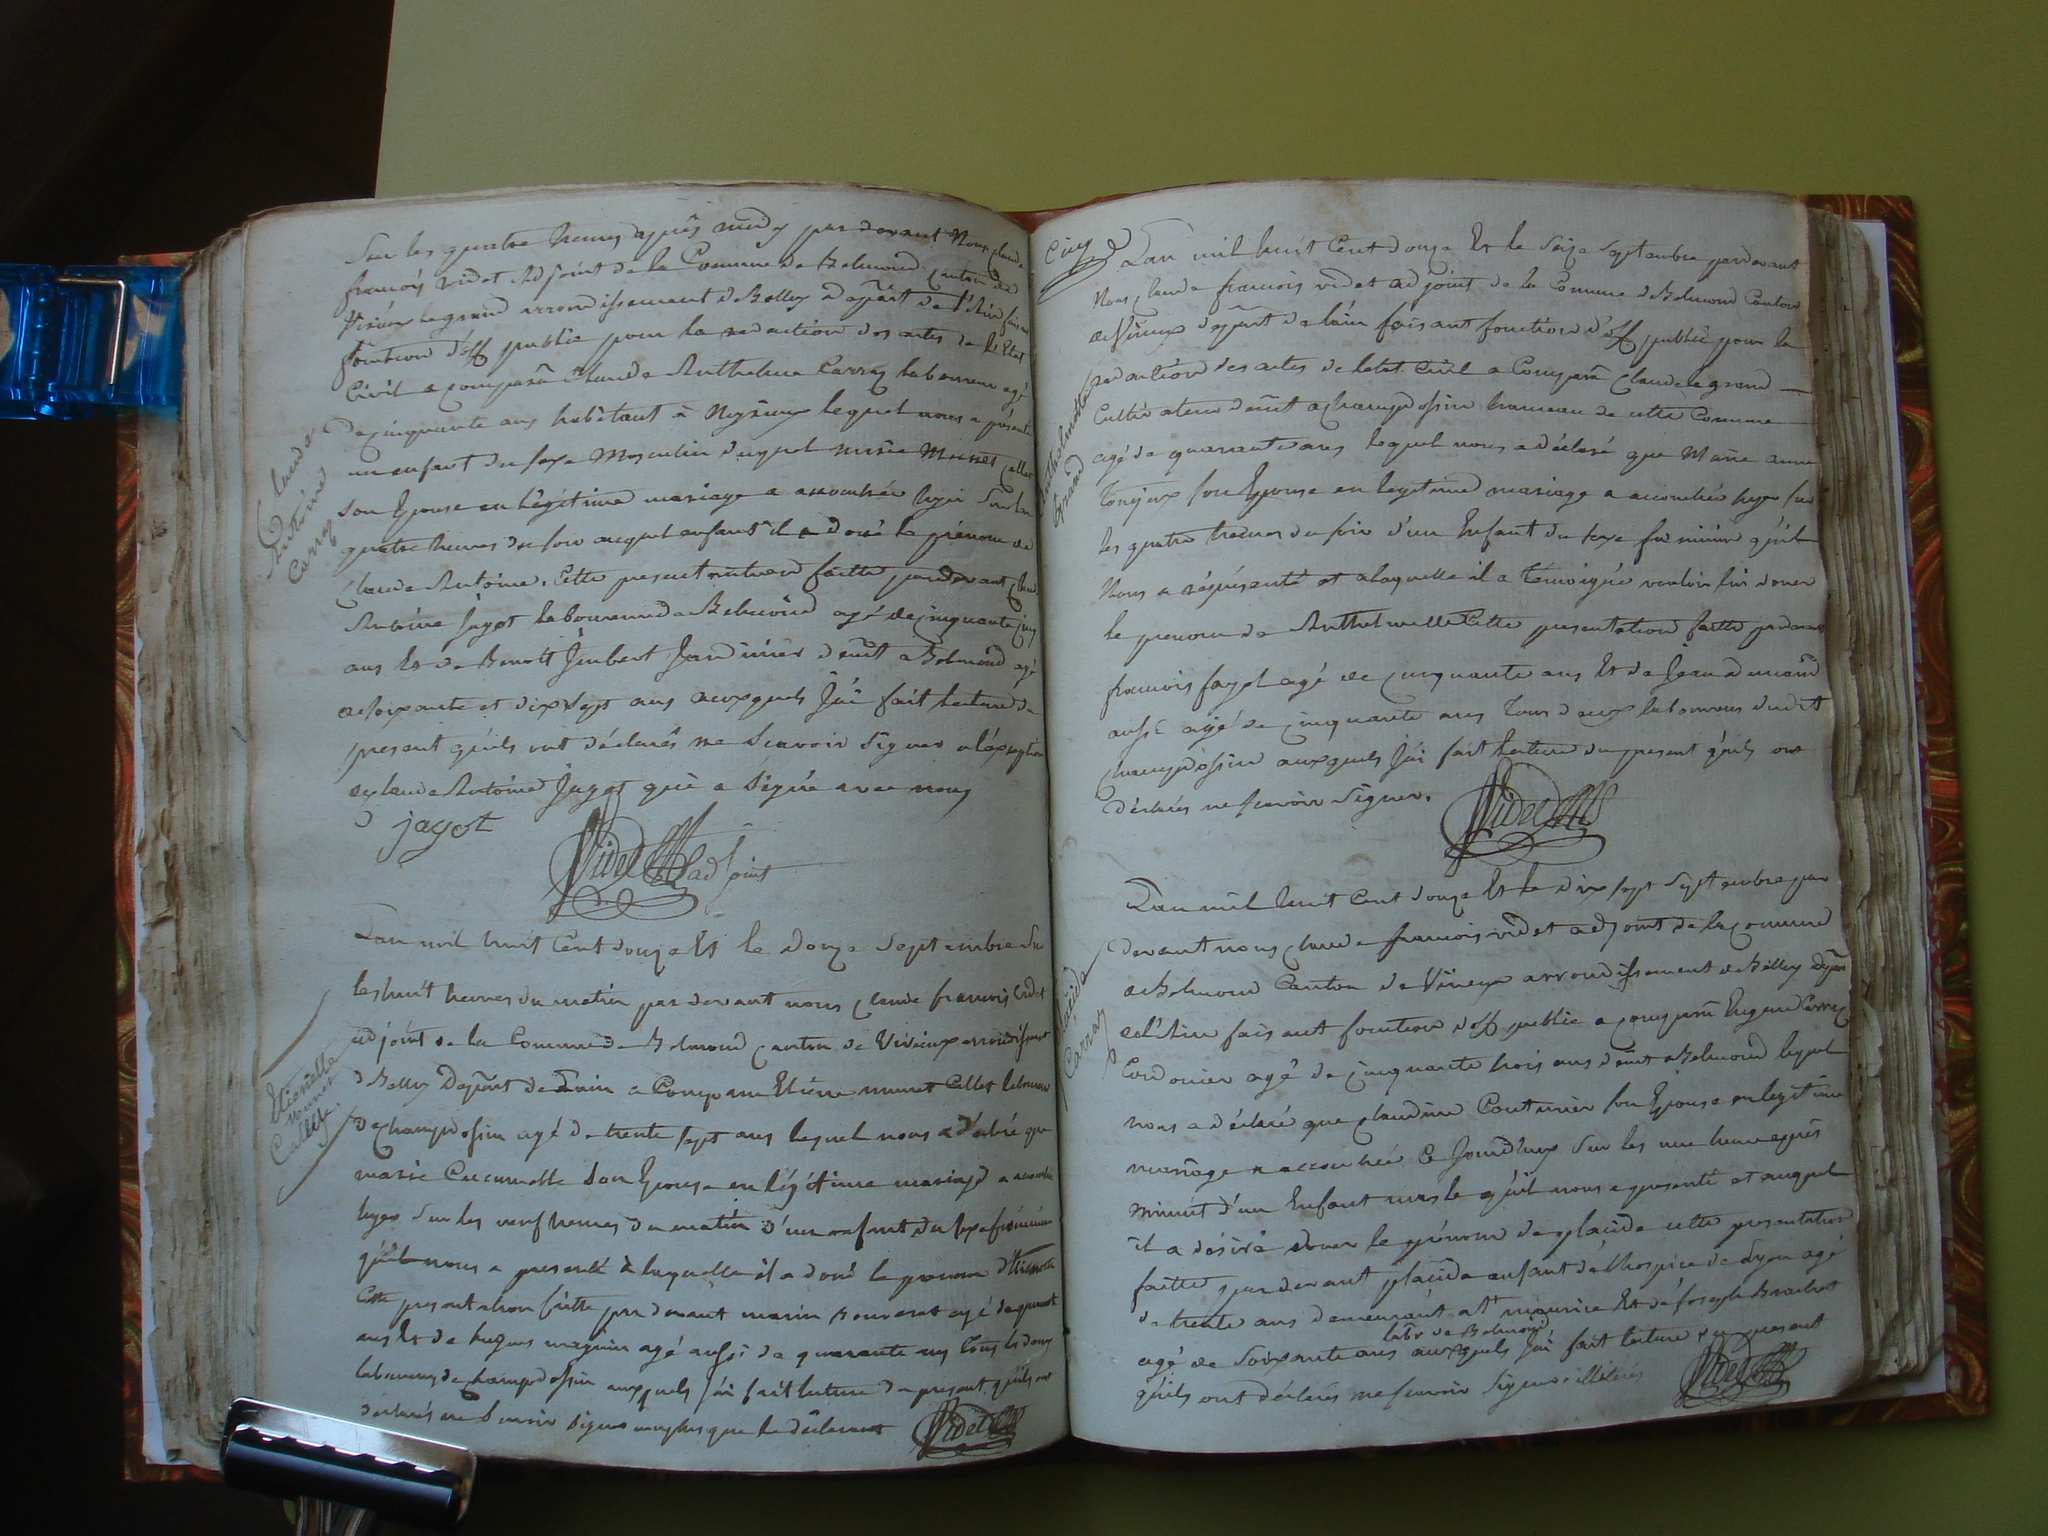 Sur les quatre heures après midy par devant Nous claude
françois videt Adjoint de la Commune de Belmond canton de
Virieux le grand arrondissement de Belley Depart de l'Ain fais
fonction d'off publie pour la redaction des actes de l'Etat
Civil a comparu Claude Anthelme Carraz laboureur agé
de cinquante ans habitant a lequel nous a présenté
un enfant du sexe Masculin duquel Callet
son Epouse en légitime mariage a accouchée hyer sur les
quatre heures du soir auquel enfant il a doné le prénom de
Claude Antoine. Cette presentation faitte par devant Claude
Antoine Jagot laboureur de Belmond agé de cinquante cinq
ans Et de Benoit Jimbert Jardinier demt a Belmond agé
de soixante et dix sept ans auxquels J'ai fait lecture du
present qu'ils ont déclarés ne Scavoir Signer a l'exeption
de Claude Antoine Jagot qui a Signé avec nous
jagot
Videt adjoint
Claude
Antoine
Carraz
L'an mil huit Cent douze Et le douze Septembre Sur
les huit heures du matin par devant nous Claude françois Videt
adjoint de la Commune de Belmond canton de Virieux arrondissement
de Belley Depart de Lain a Comparu Etiene Callet laboureur
de champdossin agé de trente sept ans lequel nous a déclaré que
marie son Epouse en légitime mariage a accouchée
hyer sur les neuf heures du matin d'un enfant du sexe féminin
qu'il nous a presenté à laquelle il a doné le prenom d'Etienette
Cette presentation faitte par devant marin agé de quarante
ans Et de hugues magnin agé aussi de quarante ans tous les deux
laboureurs de champdossin auxquels J'ai fait lecture du present qu'ils ont
déclarés ne Scavoir Signer non plus que le déclarant Videt
Etienette
Callet
Cinq
L'an mil huit Cent douze Et le Seize Septembre pardevant
Nous Claude françois videt adjoint de la Commune de Belmond Canton
de Virieux depart de lain faisant fonction d'off publie pour la
redaction des actes de letat Civil a Comparu Claude legrand
Cultivateur demt a champdossin hameau de cette Commune
agé de quarante ans lequel nous a déclaré que Marie anne
son Epouse en legitime mariage a accouchée hyer sur
les quatre heures du soir d'un Enfant du sexe feminin qu'il
Nous a réprésenté et a laquelle il a témoigné vouloir lui doner
le prenom de Anthelmette Cette presentation faitte pardevant
françois fayol agé de cinquante ans Et de Jean
aussi agé de cinquante ans tous deux laboureurs dudit
champdossin auxquels J'ai fait lecture du present qu'ils ont
déclarés ne scavoir Signer. Videt
Anthelmette
grand
L'an mil huit Cent douze Et le dix sept Septembre par
devant nous Claude françois videt adjoint de la commune
de Belmond Canton de Virieux arrondissement de Belley depart
de l'Ain faisant fonction d'off publie a comparu Eugene Carraz
Cordonier agé de cinquante trois ans demt a Belmond lequel
nous a déclaré que claudine Couturier son Epouse en legitime
mariage a accouchée ce Jourd'huy sur les une heure après
minuit d'un Enfant mâsle qu'il nous a presenté et auquel
il a désiré doner le prénom de placide cette presentation
faitte par devant placide enfant de l'hospice de Lyon agé
de trente ans demeurant a St maurice Et de Joseph
labr de Belmond
agé de Soixante ans auxquels J'ai fait lecture du present
qu'ils ont déclarés ne scavoir Signer illétérés Videt
placide
Carraz